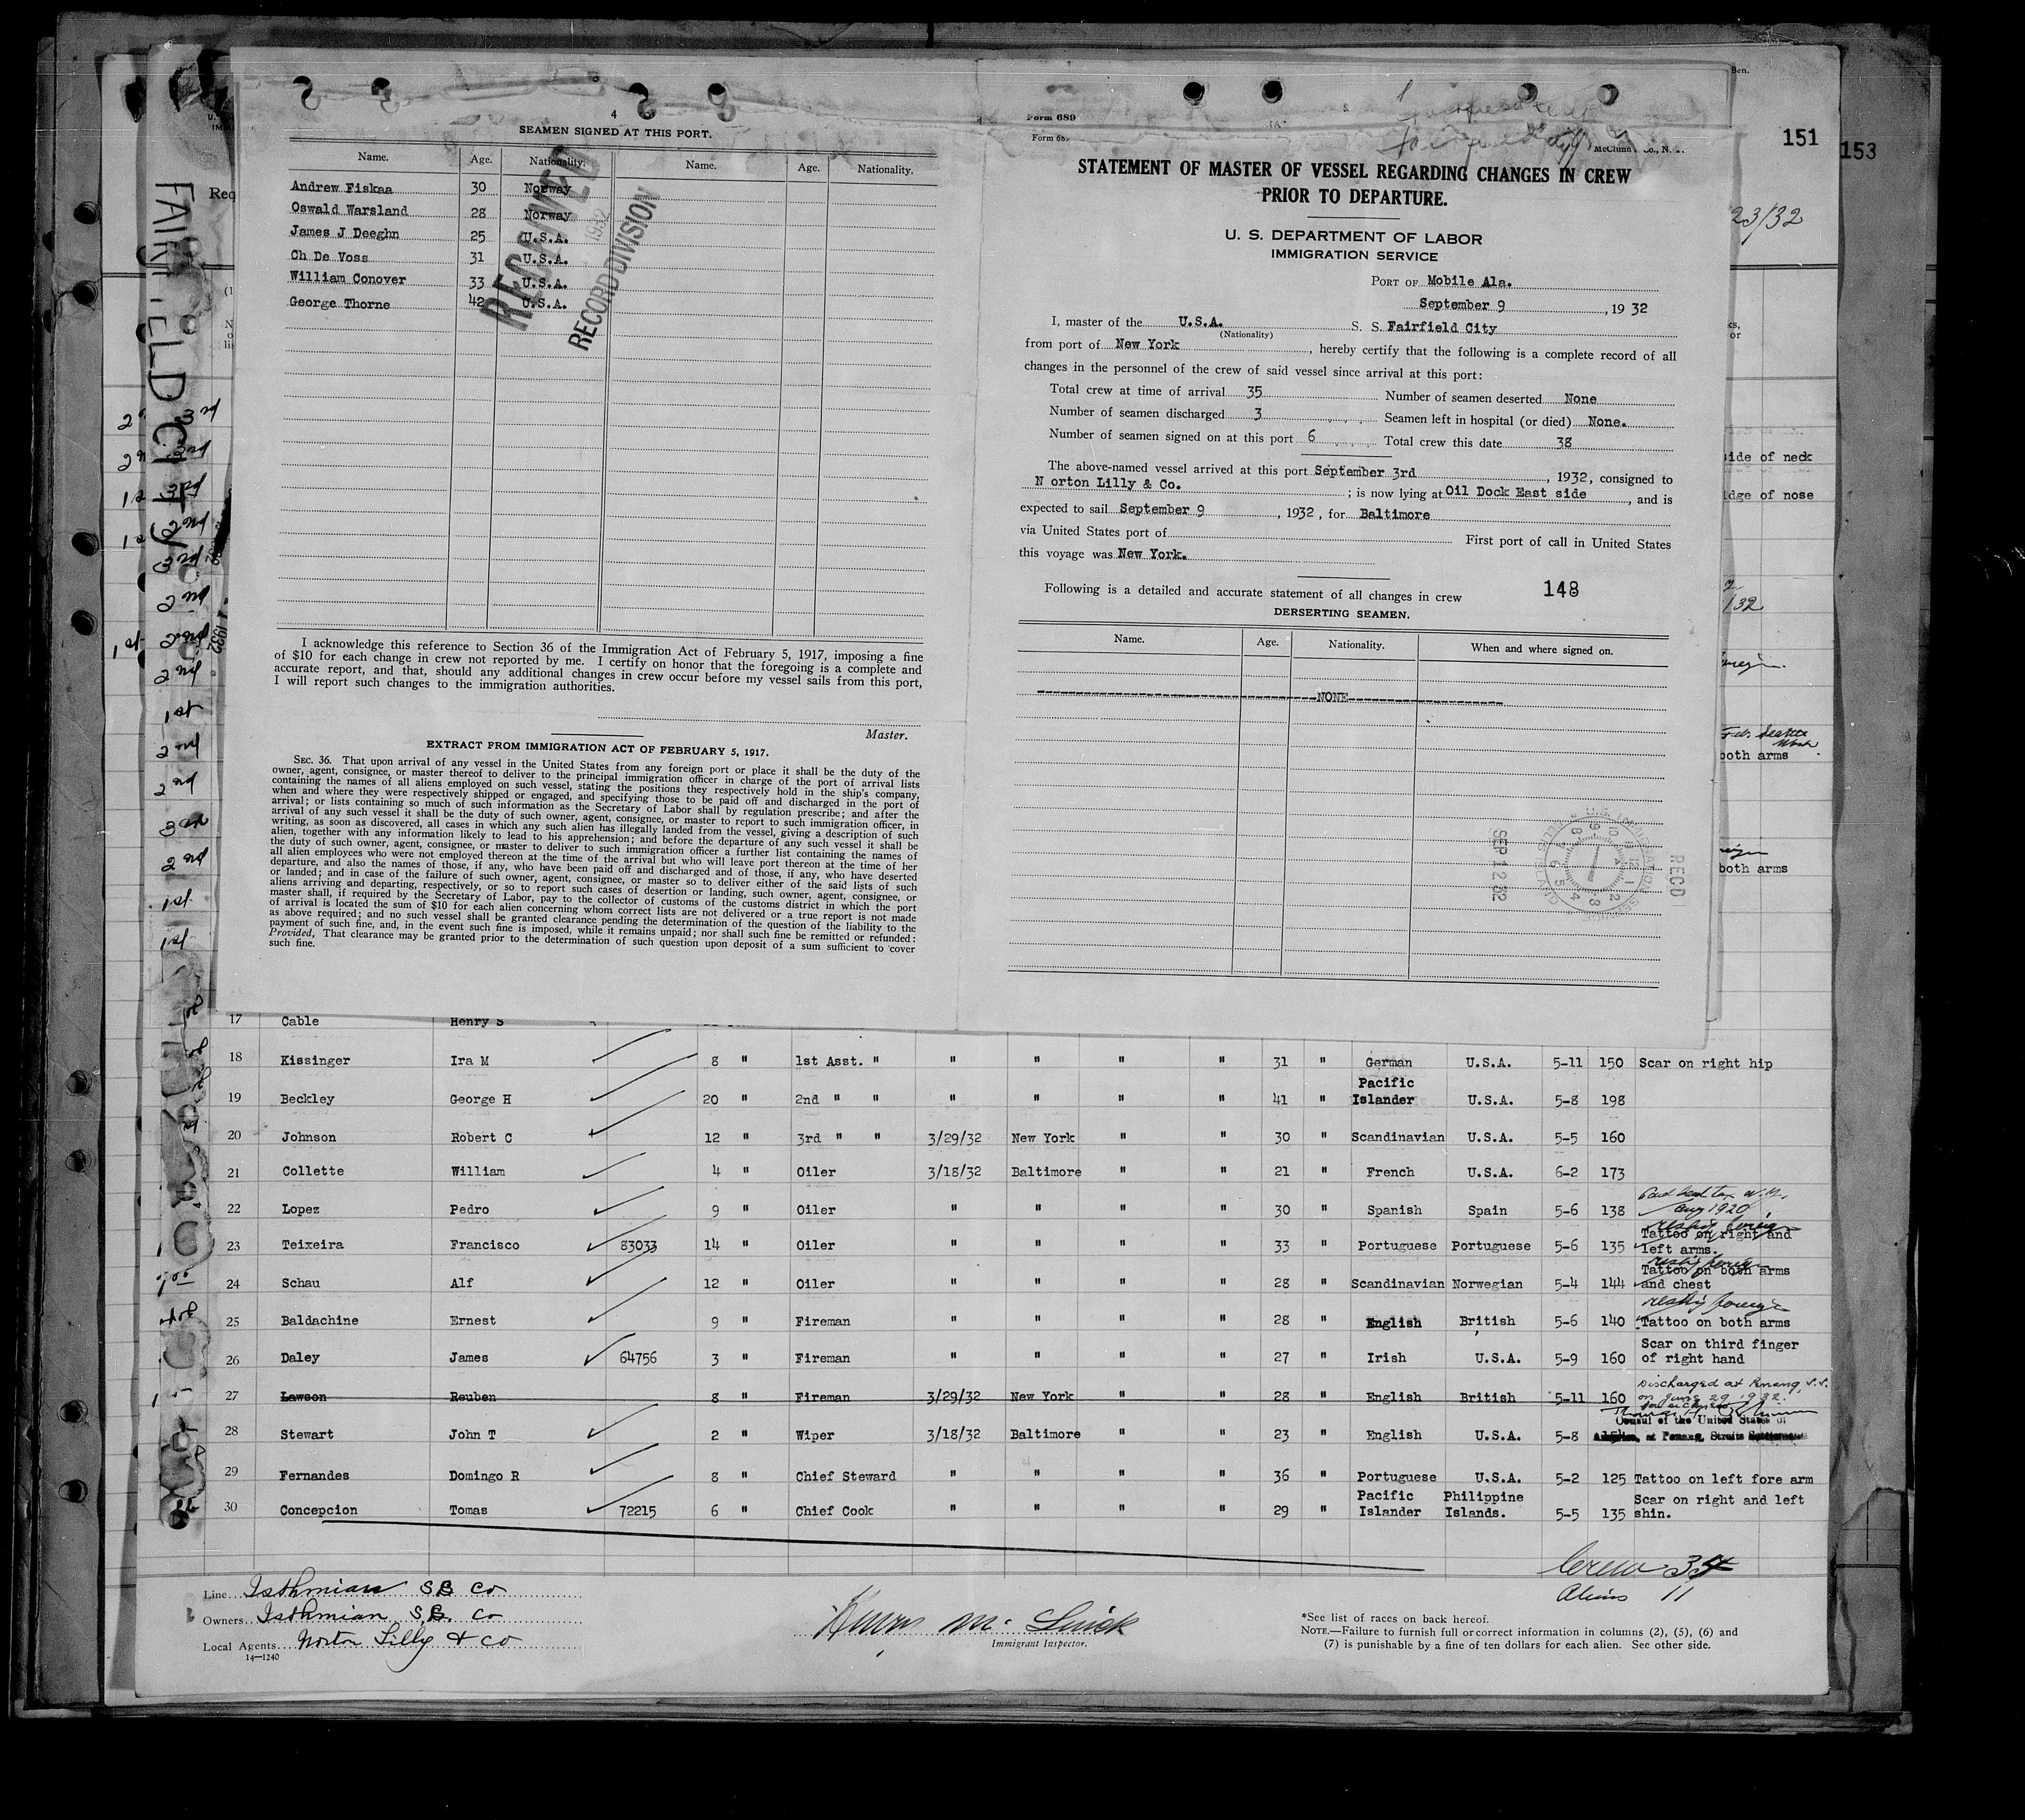 4
SEAMEN SIGNED AT THIS PORT.
Name. Age. Nationality. Name. Age. Nationality.
Andrew Fiskaa 30 Norway
Oswald Warsland 28 Norway
James J Deeghn 25 U.S.A.
Ch De Voss 31 U.S.A.
William Conover 33 U.S.A.
George Thorne 42 U.S.A.
RECEIVED
1932
RECORD DIVISION
I acknowledge this reference to Section 36 of the Immigration Act of February 5, 1917, imposing a fine
of $10 for each change in crew not reported by me. I certify on honor that the foregoing is a complete and
accurate report, and that, should any additional changes in crew occur before my vessel sails from this port,
I will report such changes to the immigration authorities.
Master.
EXTRACT FROM IMMIGRATION ACT OF FEBRUARY 5, 1917.
SEC. 36. That upon arrival of any vessel in the United States from any foreign port or place it shall be the duty of the
owner, agent, consignee, or master thereof to deliver to the principal immigration officer in charge of the port of arrival lists
containing the names of all aliens employed on such vessel, stating the positions they respectively hold in the ship's company,
when and where they were respectively shipped or engaged, and specifying those to be paid off and discharged in the port of
arrival; or lists containing so much of such information as the Secretary of Labor shall by regulation prescribe; and after the
arrival of any such vessel it shall be the duty of such owner, agent, consignee, or master to report to such immigration officer, in
writing, as soon as discovered, all cases in which any such alien has illegally landed from the vessel, giving a description of such
alien, together with any information likely to lead to his apprehension; and before the departure of any such vessel it shall be
the duty of such owner, agent, consignee, or master to deliver to such immigration officer a further list containing the names of
all alien employees who were not employed thereon at the time of the arrival but who will leave port thereon at the time of her
departure, and also the names of those, if any, who have been paid off and discharged and of those, if any, who have deserted
or landed; and in case of the failure of such owner, agent, consignee, or master so to deliver either of the said lists of such
aliens arriving and departing, respectively, or so to report such cases of desertion or landing, such owner, agent, consignee, or
master shall, if required by the Secretary of Labor, pay to the collector of customs of the customs district in which the port
of arrival is located the sum of $10 for each alien concerning whom correct lists are not delivered or a true report is not made
as above required; and no such vessel shall be granted clearance pending the determination of the question of the liability to the
payment of such fine, and, in the event such fine is imposed, while it remains unpaid; nor shall such fine be remitted or refunded:
Provided, That clearance may be granted prior to the determination of such question upon deposit of a sum sufficient to cover
such fine.
Form 689
Form 689
STATEMENT OF MASTER OF VESSEL REGARDING CHANGES IN CREW
PRIOR TO DEPARTURE.
U. S. DEPARTMENT OF LABOR
IMMIGRATION SERVICE
PORT OF Mobile Ala.
September 9, 1932
I, master of the U.S.A. S. S. Fairfield City
(Nationality)
from port of New York, hereby certify that the following is a complete record of all
changes in the personnel of the crew of said vessel since arrival at this port:
Total crew at time of arrival 35 Number of seamen deserted None
Number of seamen discharged 3 Seamen left in hospital (or died) None.
Number of seamen signed on at this port 6 Total crew this date 38
The above-named vessel arrived at this port September 3rd, 1932, consigned to
N orton Lilly & Co.; is now lying at Oil Dock East side, and is
expected to sail September 9, 1932, for Baltimore
via United States port of First port of call in United States
this voyage was New York.
Following is a detailed and accurate statement of all changes in crew 148
DERSERTING SEAMEN.
Name. Age. Nationality. When and where signed on.
NONE
SEP 12 32
RECD
151
153
23/32
FAIRFIELD CITY
side of neck
both arms
both arms
17 Cable Henry S
18 Kissinger Ira M 8 " 1st Asst. " " " " " 31 " German U.S.A. 5-11 150 Scar on right hip
19 Beckley George H 20 " 2nd " " " " " " 41 " Pacific Islander U.S.A. 5-8 198
20 Johnson Robert C 12 " 3rd " " 3/29/32 New York " " 30 " Scandinavian U.S.A. 5-5 160
21 Collette William 4 " Oiler 3/18/32 Baltimore " " 21 " French U.S.A. 6-2 173
22 Lopez Pedro 9 " Oiler " " " " 30 " Spanish Spain 5-6 138 Aug 1920
23 Teixeira Francisco 83033 14 " Oiler " " " " 33 " Portuguese Portuguese 5-6 135 Tattoo on right and left arms.
24 Schau Alf 12 " Oiler " " " " 28 " Scandinavian Norwegian 5-4 144 Tattoo on both arms and chest
25 Baldachine Ernest 9 " Fireman " " " " 28 " English British 5-6 140 Tattoo on both arms
26 Daley James 64756 3 " Fireman " " " " 27 " Irish U.S.A. 5-9 160 Scar on third finger of right hand
27 Lawson Reuben 8 " Fireman 3/29/32 New York " " 28 " English British 5-11 160 Discharged at Penang, S.S. on June 29 1932.
Consul of the United States of
at Penang, Straits Settlements
28 Stewart John T 2 " Wiper 3/18/32 Baltimore " " 23 " English U.S.A. 5-8
29 Fernandes Domingo R 8 " Chief Steward " " " " 36 " Portuguese U.S.A. 5-2 125 Tattoo on left fore arm
30 Concepcion Tomas 72215 6 " Chief Cook " " " " 29 " Pacific Islander Philippine Islands. 5-5 135 Scar on right and left shin.
Crew 34
Aliens 11
Line Isthmian SS Co
Owners Isthmian SS. Co
Local Agents Norton Lilly & Co
14—1240
Immigrant Inspector.
*See list of races on back hereof.
NOTE.—Failure to furnish full or correct information in columns (2), (5), (6) and
(7) is punishable by a fine of ten dollars for each alien. See other side.